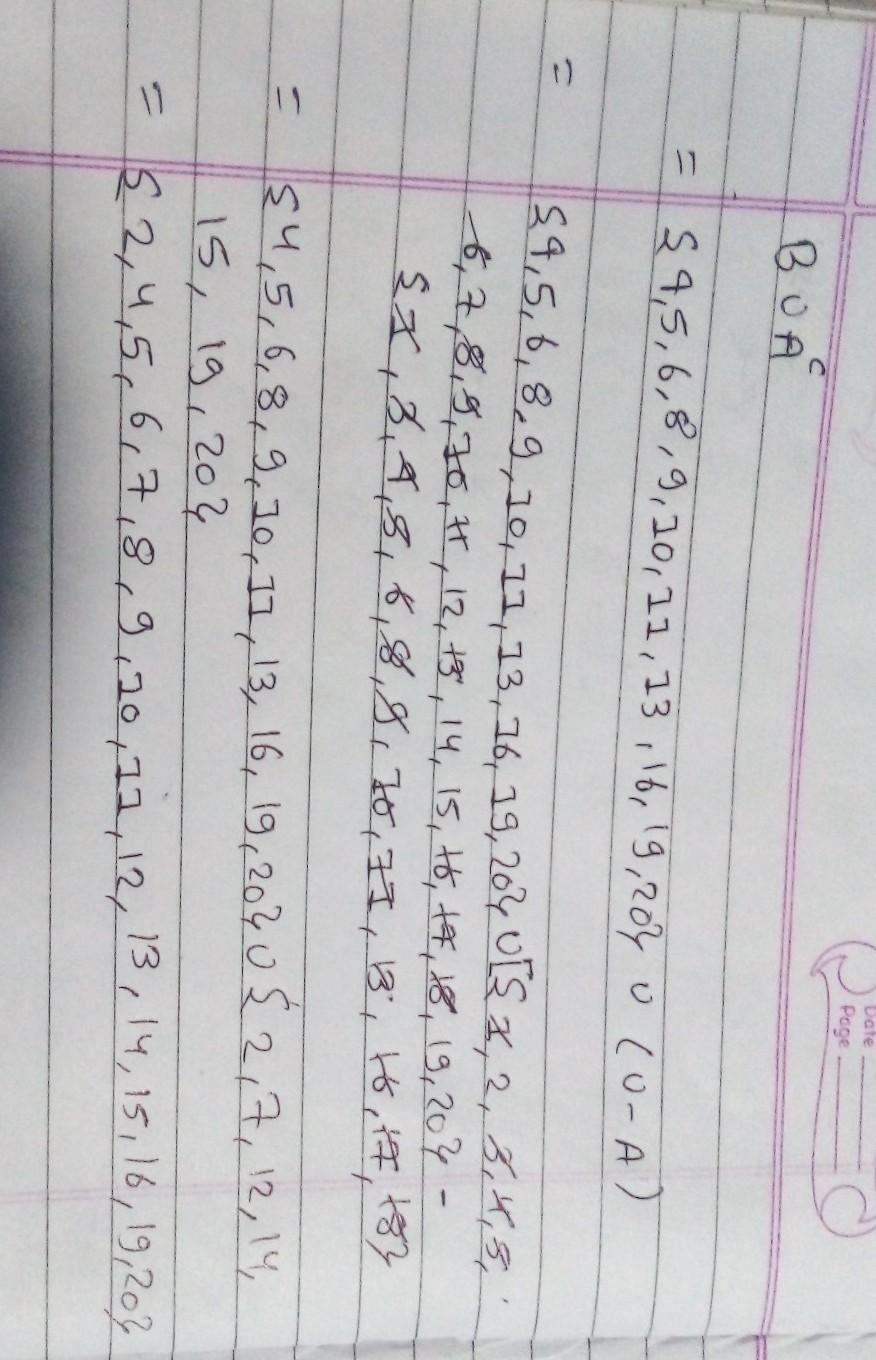 Date
Page
B ∪ Aᶜ
= {4,5,6,8,9,10,11,13,16,19,20} ∪ (U-A)
= {4,5,6,8,9,10,11,13,16,19,20} ∪ [{1,2,3,4,5,
6,7,8,9,10,11,12,13,14,15,16,17,18,19,20} -
{1,3,4,5,6,8,9,10,11,13,16,17,18}
= {4,5,6,8,9,10,11,13,16,19,20} ∪ {2,7,12,14,
15,19,20}
= {2,4,5,6,7,8,9,10,11,12,13,14,15,16,19,20}